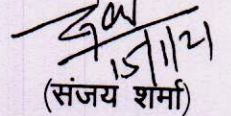 15/1/21
(संजय शर्मा)